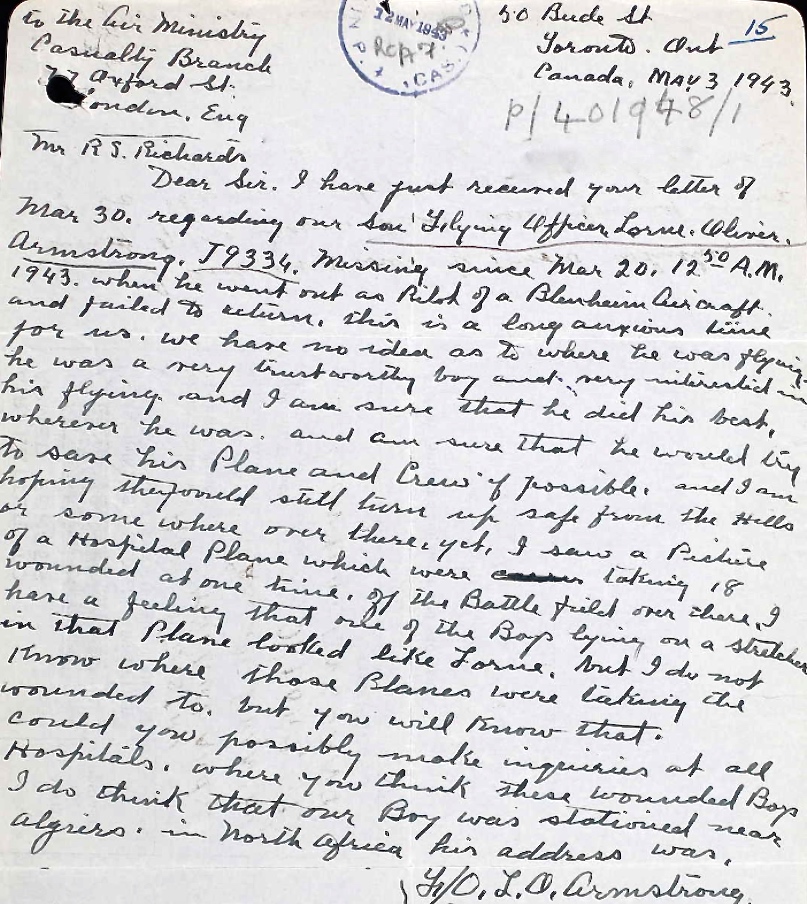 to the Air Ministry
Casualty Branch
77 Oxford St.
London, Eng
12 MAY 1943
CAS.
50 Bude St
Toronto. Ont
Canada, MAY 3 1943.
15
P/401948/1
Mr R.S. Richards
Dear Sir. I have just received your letter of
Mar 30. regarding our son Flying Officer Lorne. Oliver.
Armstrong. J9334. Missing since Mar 20. 12 50 A.M.
1943. when he went out as Pilot of a Blenheim Aircraft.
and failed to return. this is a long anxious time
for us. we have no idea as to where he was flying.
he was a very trustworthy boy and very interested in
his flying. and I am sure that he did his best,
wherever he was. and am sure that he would try
to save his Plane and Crew if possible. and I am
hoping they could still turn up safe from the Hills
or some where over there, yet, I saw a Picture
of a Hospital Plane which were taking 18
wounded at one time. of the Battle field over there, I
have a feeling that one of the Boys lying on a stretcher
in that Plane looked like Lorne. but I do not
Know where those Planes were taking the
wounded to. but you will Know that.
could you possibly make inquiries at all
Hospitals. where you think these wounded Boys
I do think that our Boy was stationed near
algiers. in North Africa his address was.
F/O. L. O. Armstrong.